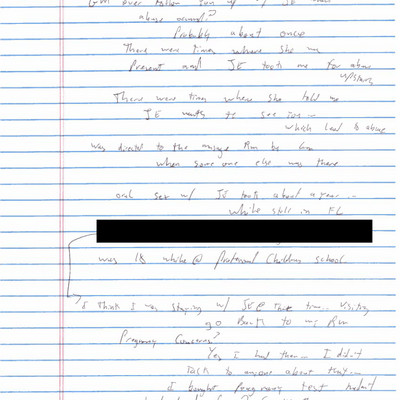 abuse occurred?
Probably about once
There were times where she was
Present and JE took me for abuse
upstairs
There were times where she told me
JE wants to see you ...
which lead to abuse
was directed to the massage Rm by
when some one else was there
oral sex w/ JE took about a year ..
while still in FL
was 18 while @ Professional Children school
I think I was staying w/ JE @ that time .. visiting
go Back to my Rm
Pregnancy Concerns?
Yes I had them ... I didn't
talk to anyone about that ..
I bought pregnancy test